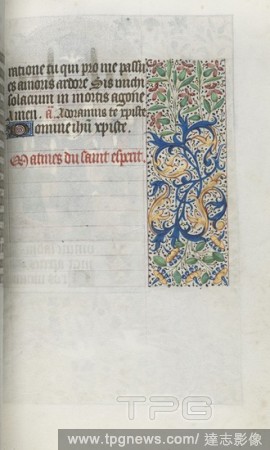 mttione tu qui pro me passus
es amoris ardore Sis michi
solacium in mortis agone
amen. a. Adoramus te xpiste
Domine ihu xpiste.
Matines du saint esperit.
TPG
www.tpgnews.com / 達志影像